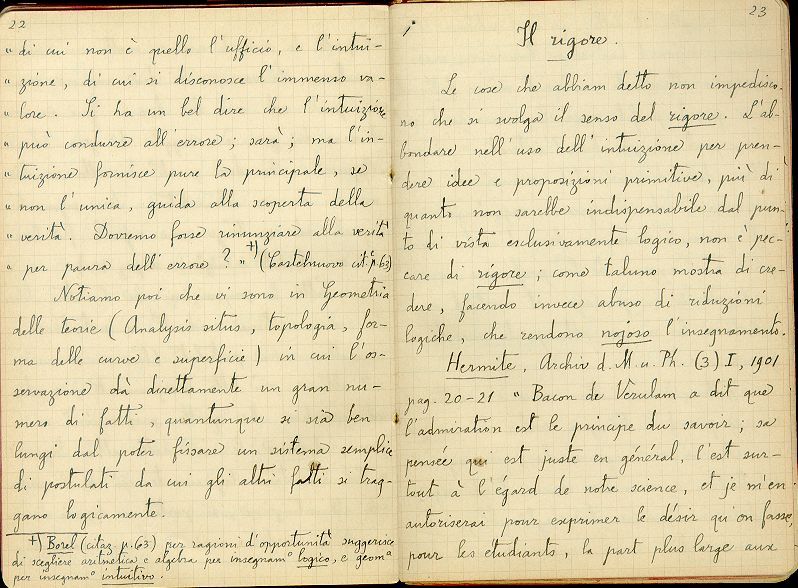 22
" di cui non è quello l'ufficio, e l'intui-
" zione, di cui si disconosce l'immenso va-
" lore. Si ha un bel dire che l'intuizione
" può condurre all'errore; sarà; ma l'in-
" tuizione fornisce pure la principale, se
" non l'unica, guida alla scoperta della
" verità. Dovremo forse rinunziare alla verità
" per paura dell'errore? " +) (Castelnuovo cit. p. 63)
Notiamo poi che vi sono in Geometria
delle teorie (Analysis situs, topologia, for-
ma delle curve e superficie) in cui l'os-
servazione dà direttamente un gran nu-
mero di fatti, quantunque si sia ben
lungi dal poter fissare un sistema semplice
di postulati da cui gli altri fatti si trag-
gano logicamente.
+) Borel (citaz. p. 63) per ragioni d'opportunità suggerisce
di scegliere aritmetica e algebra per insegnam.º logico, e geom.ª
per insegnam.º intuitivo.
23
Il rigore.
Le cose che abbiam detto non impedisco-
no che si svolga il senso del rigore. L'ab-
bondare nell'uso dell'intuizione per pren-
dere idee e proposizioni primitive, più di
quanto non sarebbe indispensabile dal pun-
to di vista esclusivamente logico, non è pec-
care di rigore; come taluno mostra di cre-
dere, facendo invece abuso di riduzioni
logiche, che rendono nojoso l'insegnamento.
Hermite, Archiv d. M. u. Ph. (3) I, 1901
pag. 20-21 " Bacon de Vèrulam a dit que
l'admiration est le principe du savoir; sa
pensée qui est juste en général, l'est sur-
tout à l'égard de notre science, et je m'en
autoriserai pour exprimer le désir qu'on fasse,
pour les étudiants, la part plus large aux